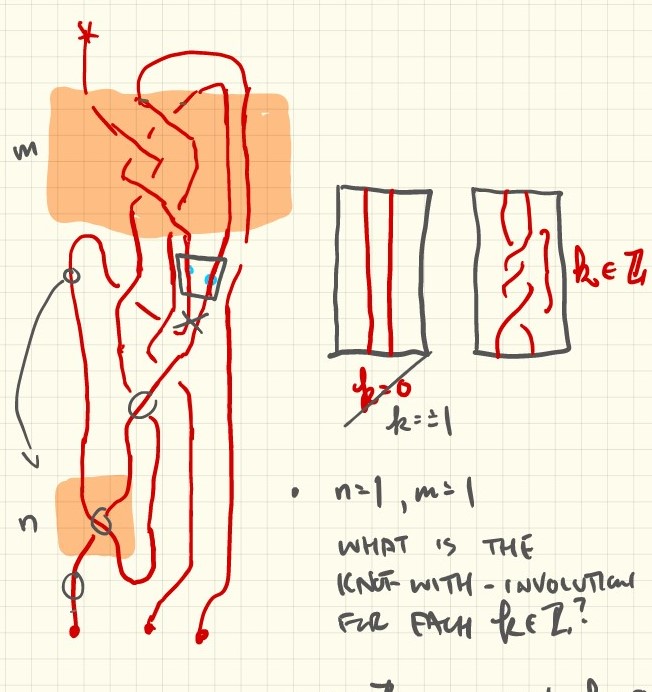 m
k ∈ ℤ
k=0
k=±1
n
• n=1, m=1
WHAT IS THE
KNOT-WITH-INVOLUTION
FOR EACH k∈ℤ?